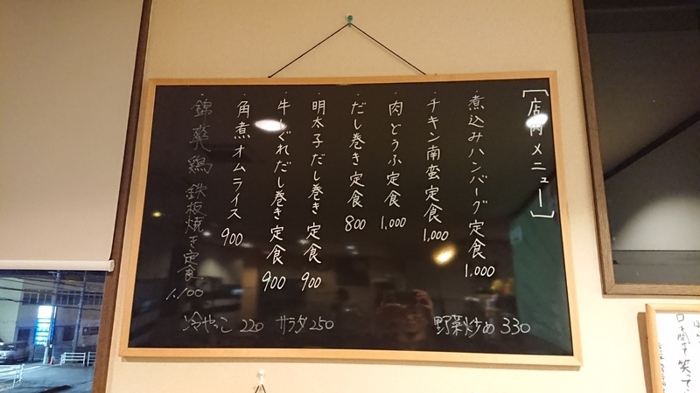 [店内メニュー]
・煮込みハンバーグ定食 1,000
・チキン南蛮定食 1,000
・肉どうふ定食 1,000
・だし巻き定食 800
・明太子だし巻き定食 900
・牛しぐれだし巻き定食 900
・角煮オムライス 900
・錦爽鶏 鉄板焼き定食 1,100
冷やっこ 220 サラダ 250 野菜炒め 330